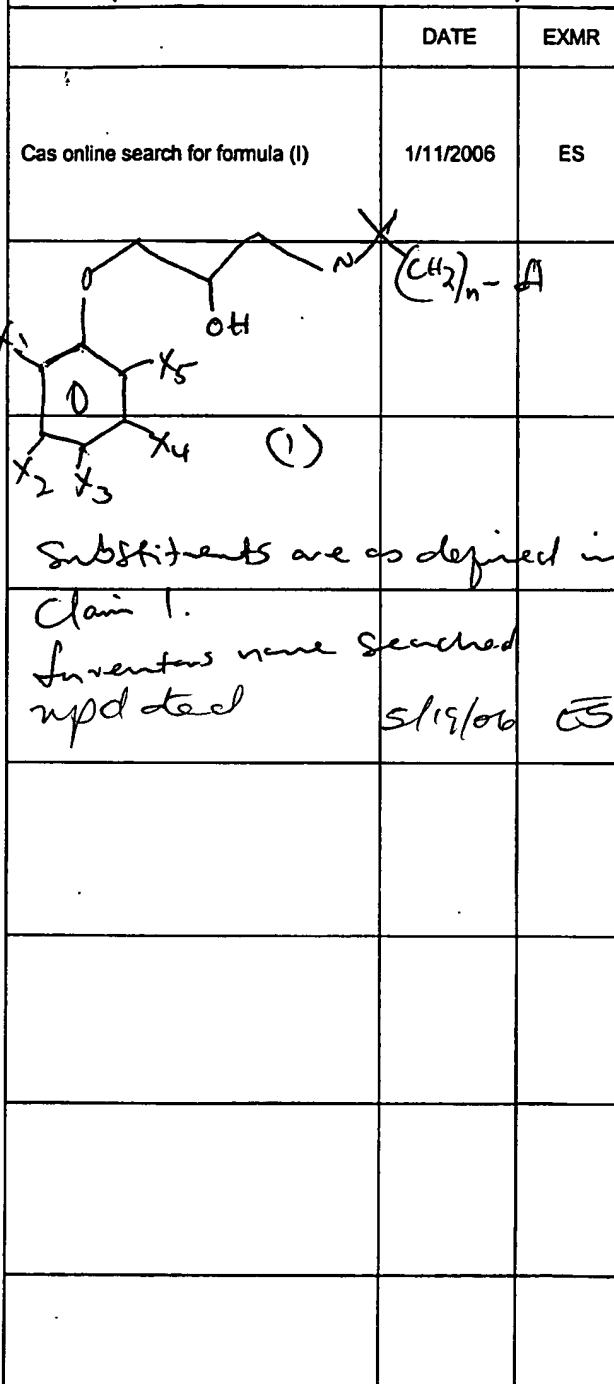 DATE EXMR
Cas online search for formula (I) 1/11/2006 ES
O OH N (CH2)n - A
X1 X5
X2 X3 X4 (1)
Substituents are as defined in
Claim 1.
Inventors name searched
updated 5/19/06 ES